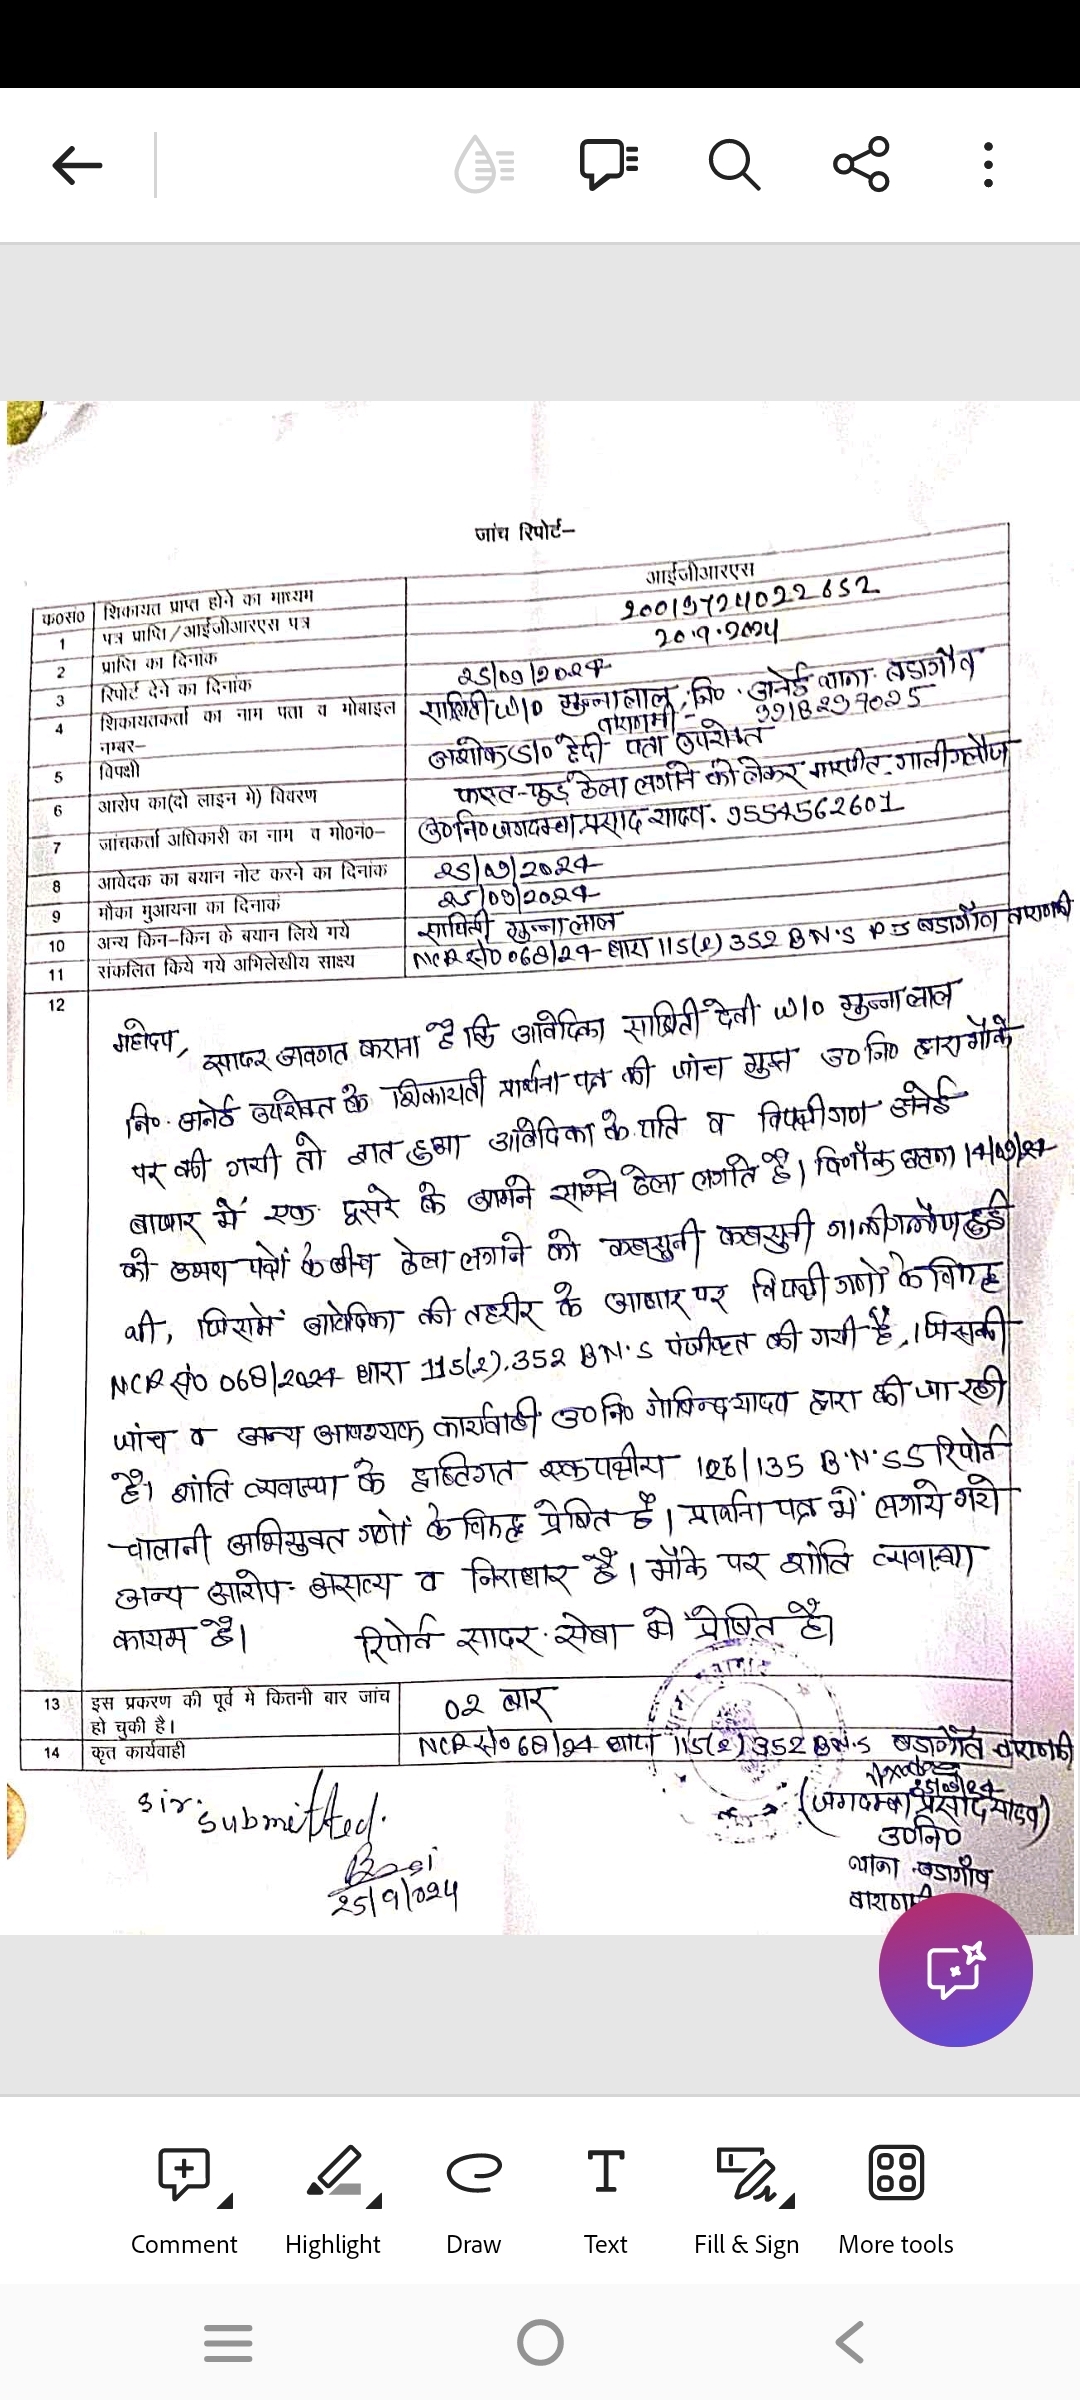 जांच रिपोर्ट–
क०सं० शिकायत प्राप्त होने का माध्यम आईजीआरएस
1 पत्र प्राप्ति/आईजीआरएस पत्र 20019724022652
2 प्राप्ति का दिनांक 20.9.2024
3 रिपोर्ट देने का दिनांक 25/09/2024
4 शिकायतकर्ता का नाम पता व मोबाइल नम्बर– साबित्री W/O मुन्नालाल, नि० अनेई थाना बडागाँव
वाराणसी- 9918297025
5 विपक्षी अशोक S/O हेदी पता उपरोक्त
6 आरोप का(दो लाइन मे) विवरण फास्ट-फूड ठेला लगाने को लेकर मारपीट-गालीगलौज
7 जांचकर्ता अधिकारी का नाम व मो०नं०– उ०नि० जगदम्बा प्रसाद यादव. 9554562601
8 आवेदक का बयान नोट करने का दिनांक 25/09/2024
9 मौका मुआयना का दिनांक 25/09/2024
10 अन्य किन-किन के बयान लिये गये सावित्री मुन्नालाल
11 संकलित किये गये अभिलेखीय साक्ष्य NCR सं० 068/24- धारा 115(2) 352 B.N.S P.S बडागाँव वाराणसी
12
महोदय,
सादर अवगत कराना है कि आवेदिका साबित्री देवी W/O मुन्नालाल
नि०. अनेई उपरोक्त के शिकायती प्रार्थना पत्र की जांच मुझ उ०नि० द्वारा मौके
पर की गयी तो ज्ञात हुआ आवेदिका के पति व विपक्षीगण अनेई
बाजार में एक दूसरे के आमने सामने ठेला लगाते है। दिनाँक घटना 14/09/24
को उभय पक्षों के बीच ठेला लगाने को कहासुनी कहासुनी गालीगलौज हुई
थी, जिसमें आवेदिका की तहरीर के आधार पर विपक्षीगणों के विरुद्ध
NCR सं० 068/2024 धारा 115(2).352 B.N.S पंजीकृत की गयी है, । जिसकी
जांच व अन्य आवश्यक कार्यवाही उ०नि० गोविन्द यादव द्वारा की जा रही
है। शांति व्यवस्था के दृष्टिगत एक पक्षीय 126/135 B.N.S.S रिपोर्ट
चालानी अभियुक्त गणों के विरुद्ध प्रेषित है। प्रार्थना पत्र में लगाये गये
अन्य आरोप असत्य व निराधार है। मौके पर शांति व्यवस्था
कायम है। रिपोर्ट सादर सेवा में प्रेषित है।
13 इस प्रकरण की पूर्व मे कितनी बार जांच हो चुकी है। 02 बार
14 कृत कार्यवाही NCR सं० 68/24 धारा 115(2) 352 B.N.S बडागाँव वाराणसी
Sir,
Submitted.
25/9/024
25/09/24
(जगदम्बा प्रसाद यादव)
उ०नि०
थाना बडागाँव
Comment Highlight Draw Text Fill & Sign More tools